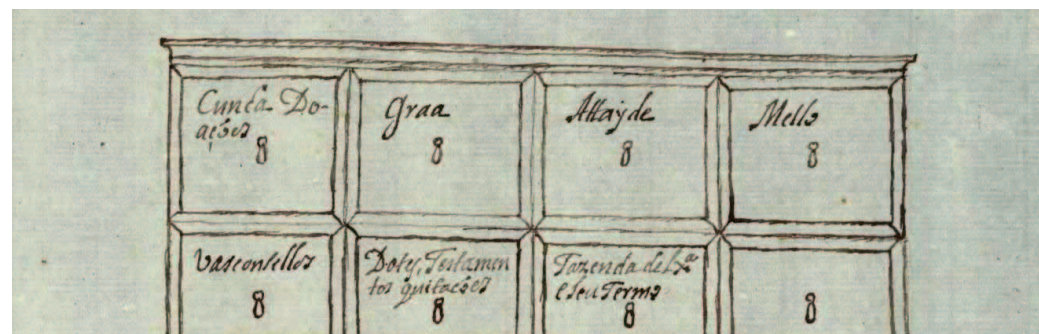 Cunha Do-
ações
Graã
Attaýde
Mello
Vasconcellos
Dotes, Testamen
tos quitações
Fazenda de Lxª
e seu Termo